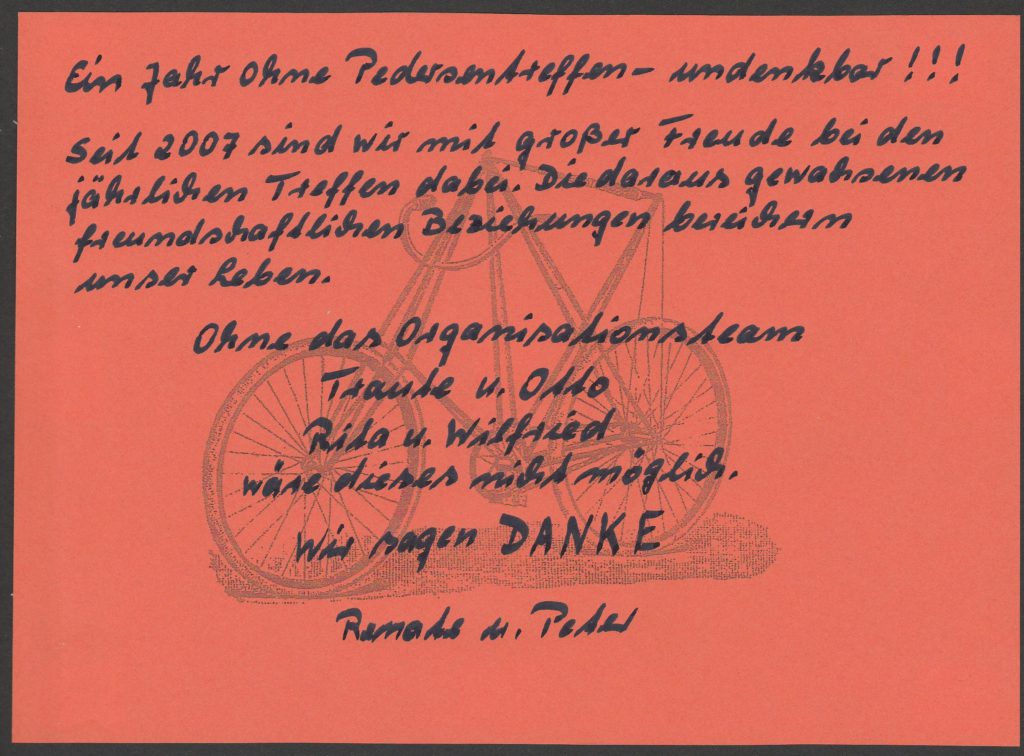 Ein Jahr Ohne Pedersentreffen – undenkbar !!!
Seit 2007 sind wir mit großer Freude bei den
jährlichen Treffen dabei. Die daraus gewachsenen
freundschaftlichen Beziehungen bereichern
unser Leben.
Ohne das Organisationsteam
Traute u. Otto
Rita u. Wilfried
wäre dieses nicht möglich.
Wir sagen DANKE
Renate u. Peter